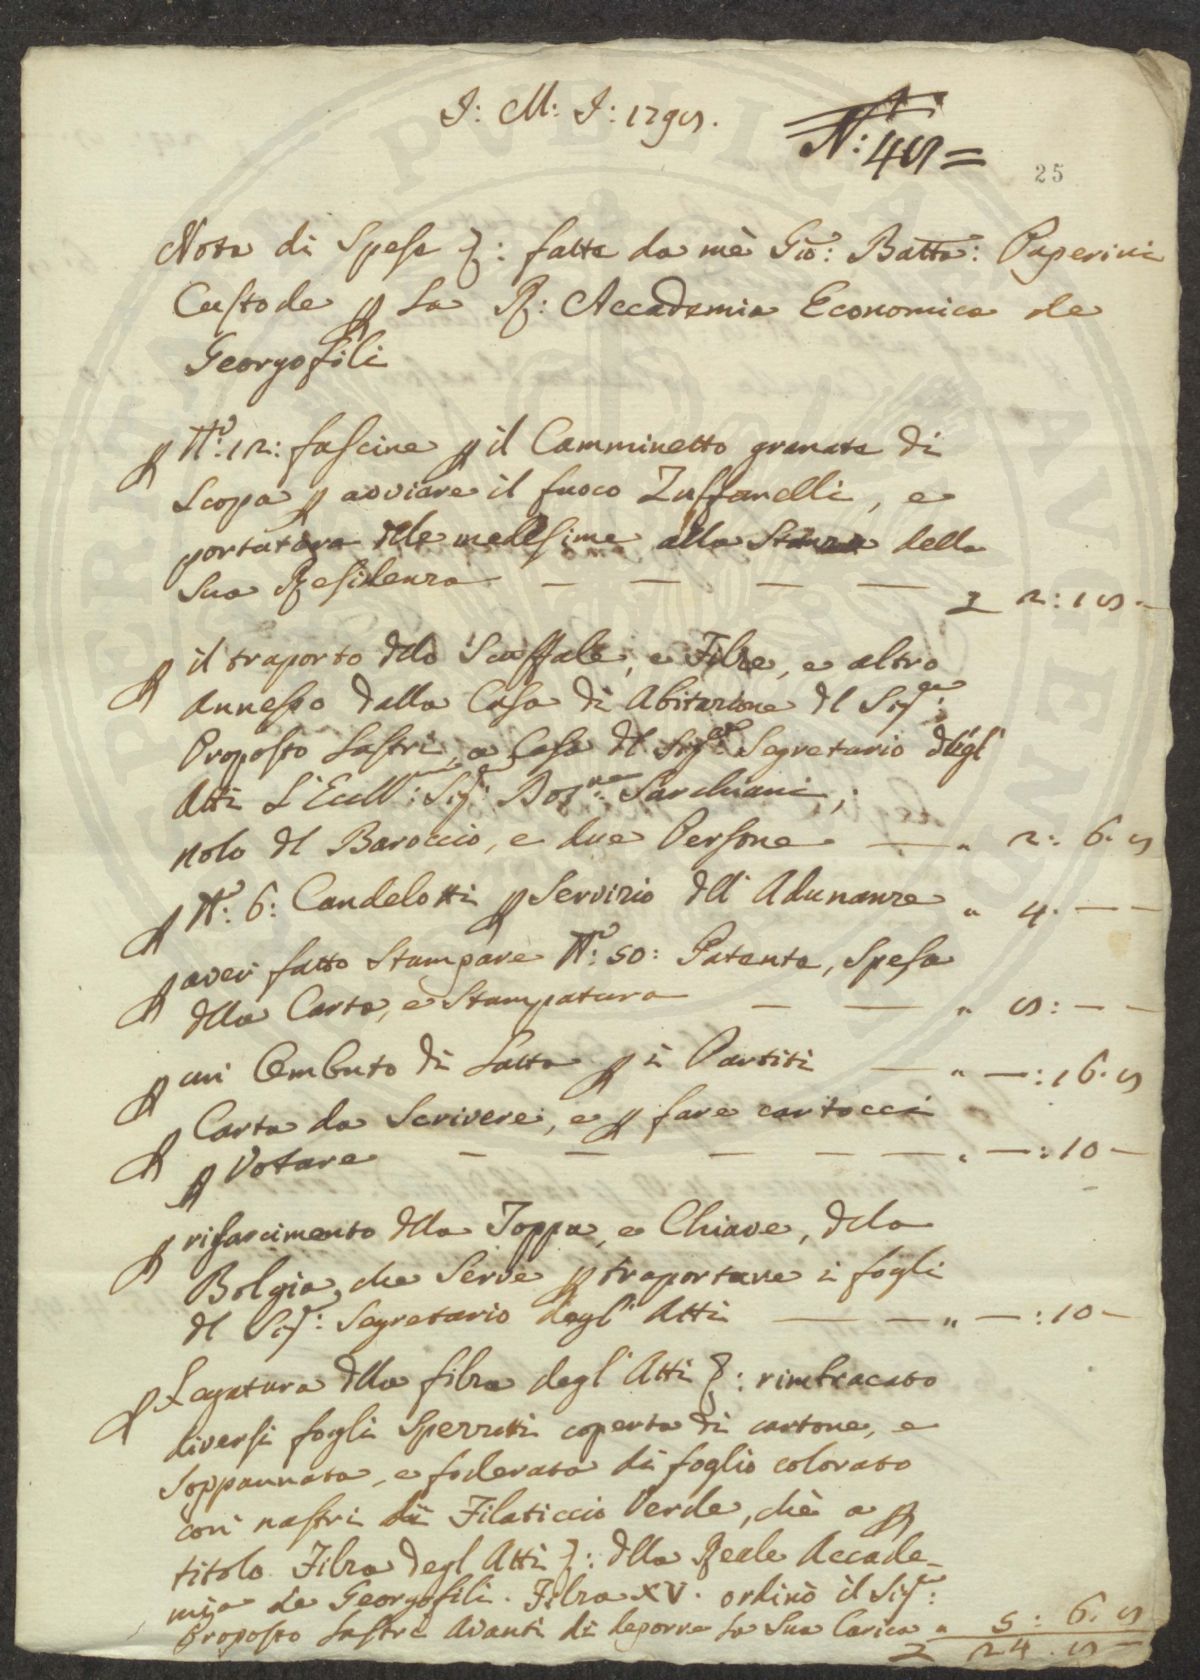 J: M: J: 1795.
N: 45=
25
Nota di Spese &: fatte da mè Gio: Batta: Paperini
Custode p la R: Accademia Economica de
Georgofili
p N:o 12: fascine p il Camminetto granate di
Scopa p avviare il fuoco Zuffanelli, e
portatura delle medesime alla Stanza della
Sua Residenza — — — — 2: 15 —
p il traporto dello Scaffale, e Filze, e altro
annesso dalla Casa di Abitazione del Sig.re
Proposto Lastri, a Casa del Sig.re Segretario degl'
Atti L'Ecell.mo: Sig.re Dot.re Sarchiani;
nolo del Baroccio, e due Persone — " 2: 6. 5
p N:o 6: Candelotti p Servizio dell' Adunanze " 4. — —
p aver fatto Stampare N:o 50: Patente, Spesa
della Carta, e Stampatura — — " 5: — —
p un Embuto di Latta p i Partiti — " —: 16. 5
p Carta da Scrivere, e p fare cartocci
p Votare — — — — — " —: 10 —
p risarcimento della Toppa, e Chiave, della
Bolgia, che Serve p traportare i fogli
del Sig.re: Segretario degl' Atti — — " —: 10 —
p Legatura della filza degl' Atti &: rimbracato
diversi fogli Spezzati coperta di cartone, e
Soppannata, e foderata di foglio colorato
con nastri di Filaticcio Verde, chè a p
titolo Filza degl Atti &: della Reale Accade-
mia de Georgofili. Filza XV. ordinò il Sig.re:
Proposto Lastri Avanti di deporre la Sua Carica " 5: 6. 5
24. 5 —